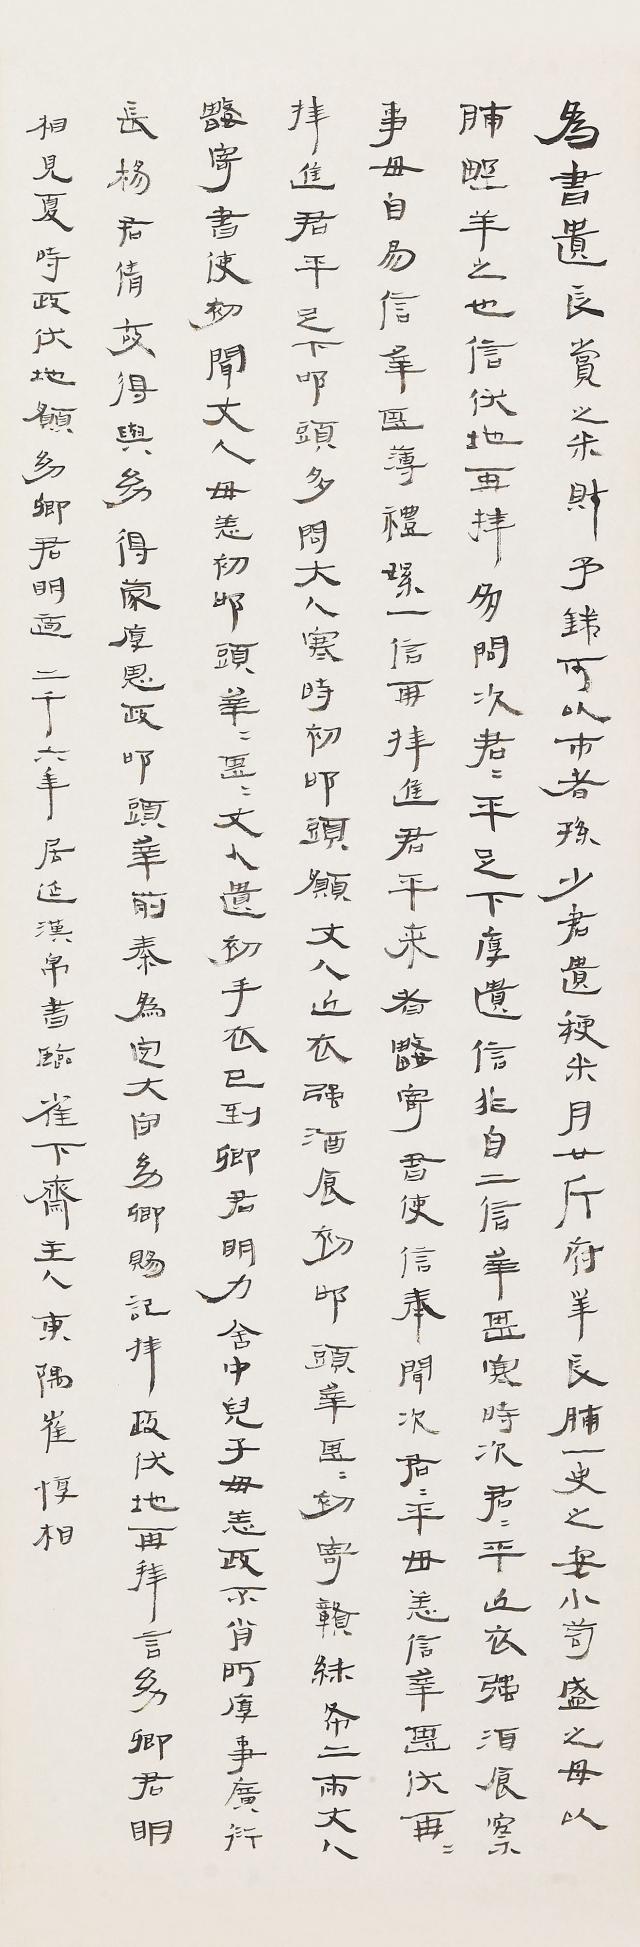 為書遺長賞之米財予錢可以市者孫少君遺稉米肉廿斤府羊長脯一史之安小笥盛之毋以
脯野羊之也信伏地再拜多問次君〻平足下厚遺信非自二信幸甚寒時次君〻平近衣強酒食察
事毋自易信幸甚薄禮一信再拜進君平來者數寄書使信奉聞次君〻平毋恙信幸甚伏再〻
拜進君平足下叩頭多問丈人寒時初叩頭願丈人近衣強酒食初叩頭幸甚〻初寄贛絑布二兩丈人
數寄書使初聞丈人毋恙初叩頭幸〻甚〻丈人遺初手衣已到卿君明力舍中兒子毋恙政不肖所厚事廣衍
長楊君倩故得與幼得蒙厚恩政叩頭幸前秦為大幼卿賜記拜政伏地再拜言幼卿君明
相見夏時政伏地願幼卿君明適二千六年居延漢帛書臨雀下齋主人東隅崔惇相